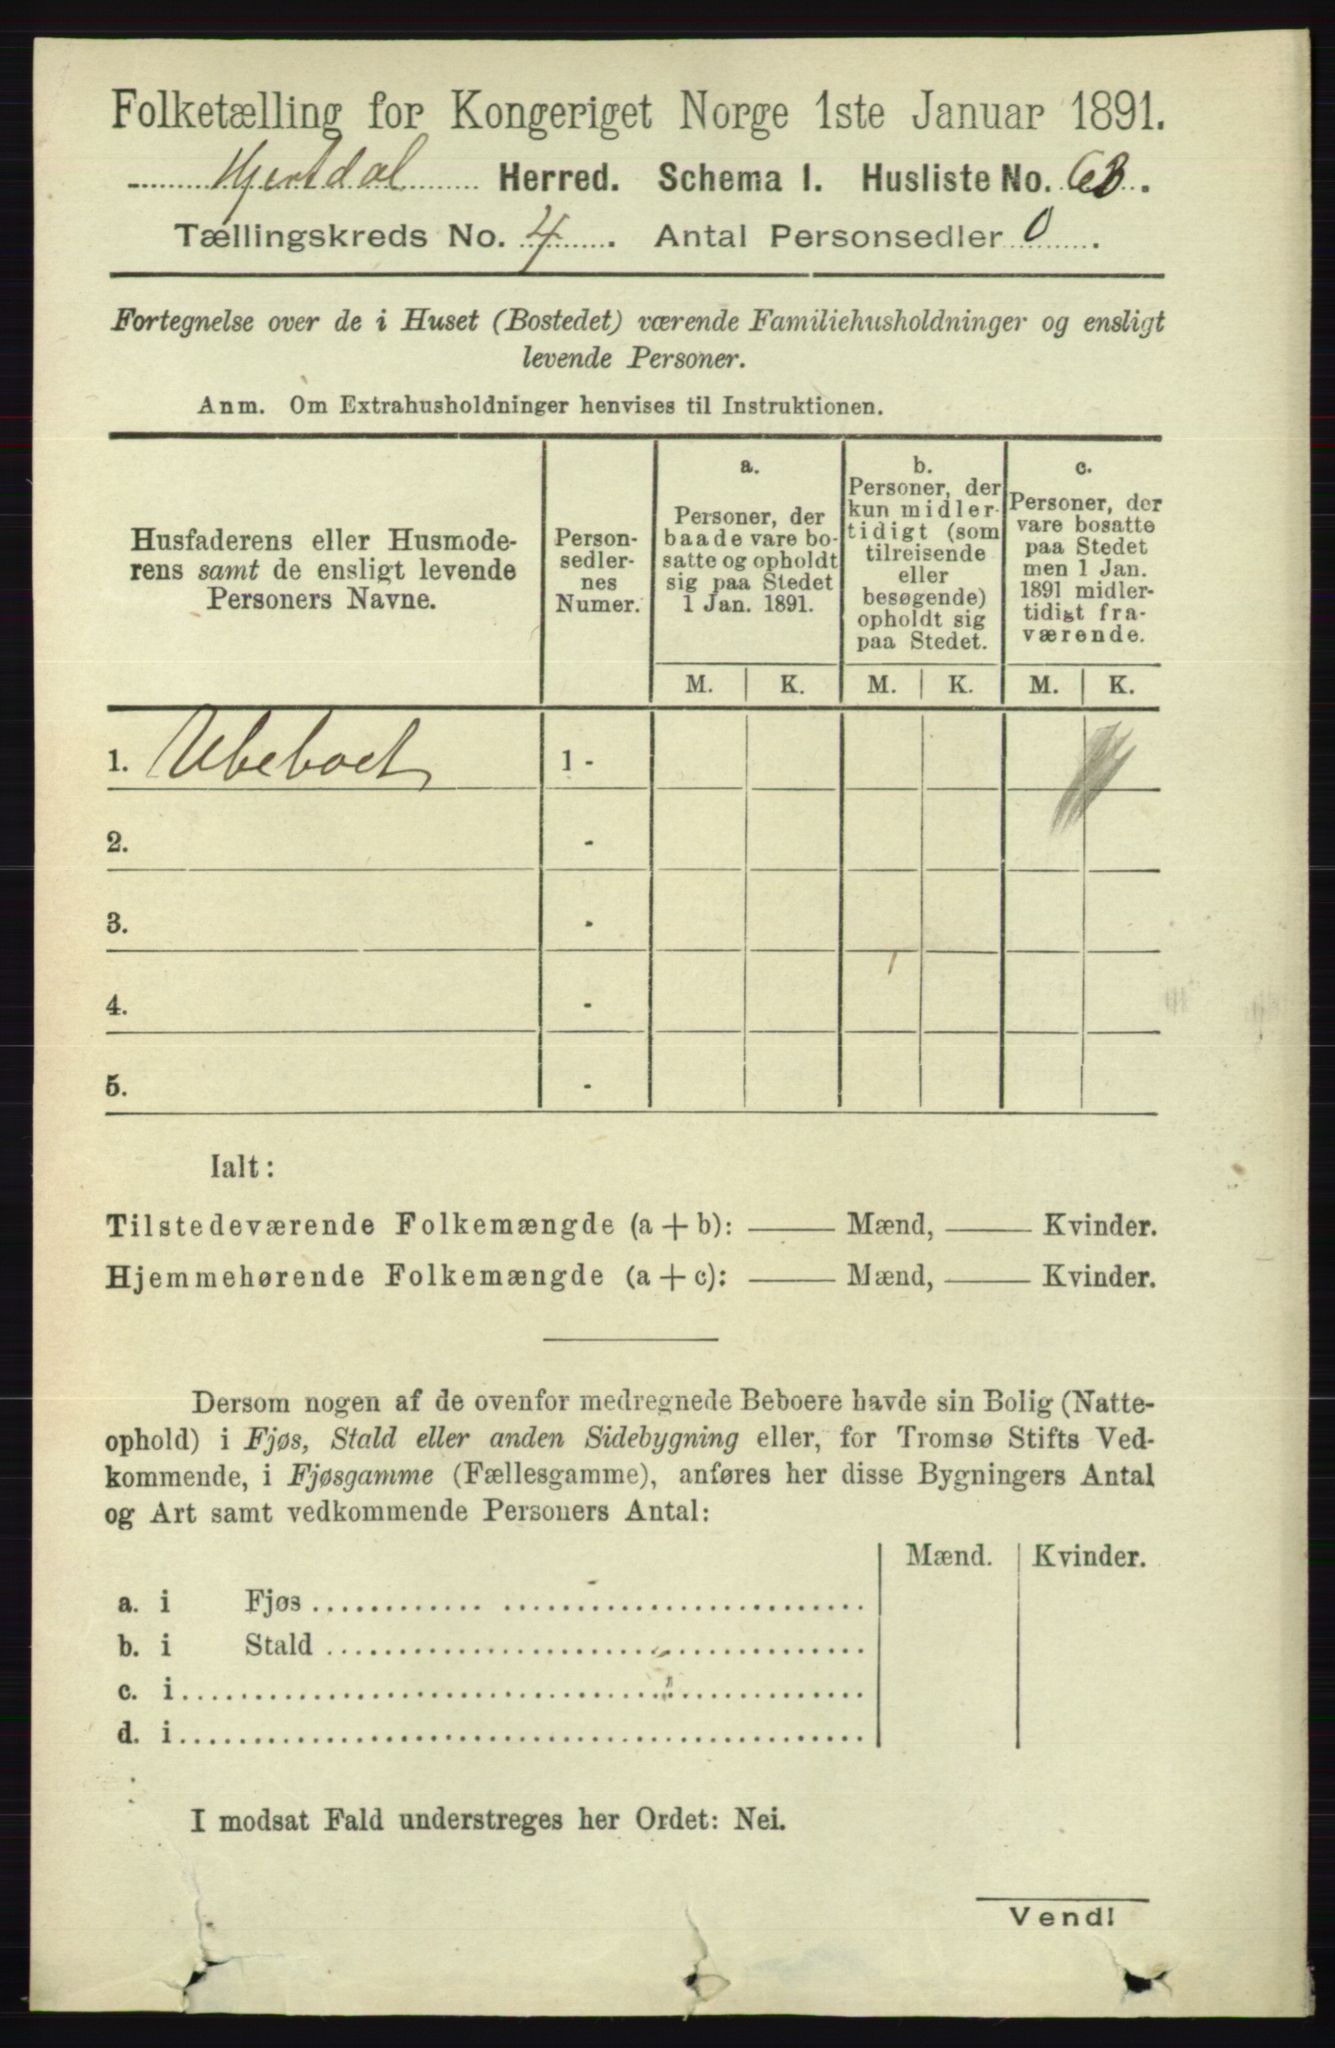 Folketælling for Kongeriget Norge 1ste Januar 1891.
Hjertdal Herred. Schema 1. Husliste No. 63.
Tællingskreds No. 4. Antal Personsedler 0.
Fortegnelse over de i Huset (Bostedet) værende Familiehusholdninger og ensligt
levende Personer.
Anm. Om Extrahusholdninger henvises til Instruktionen.
Husfaderens eller Husmode-
rens samt de ensligt levende
Personers Navne.
Person-
sedler-
nes
Numer.
a.
Personer, der
baade vare bo-
satte og opholdt
sig paa Stedet
1 Jan. 1891.
b.
Personer, der
kun midler-
tidigt (som
tilreisende
eller
besøgende)
opholdt sig
paa Stedet.
c.
Personer, der
vare bosatte
paa Stedet
men 1 Jan.
1891 midler-
tidigt fra-
værende.
M. K. M. K. M. K.
1. Ubeboet 1 -
2. -
3. -
4. -
5. -
Ialt:
Tilstedeværende Folkemængde (a + b): —— Mænd, —— Kvinder.
Hjemmehørende Folkemængde (a + c): —— Mænd, —— Kvinder.
Dersom nogen af de ovenfor medregnede Beboere havde sin Bolig (Natte-
ophold) i Fjøs, Stald eller anden Sidebygning eller, for Tromsø Stifts Ved-
kommende, i Fjøsgamme (Fællesgamme), anføres her disse Bygningers Antal
og Art samt vedkommende Personers Antal:
Mænd. Kvinder.
a. i Fjøs
b. i Stald
c. i
d. i
I modsat Fald understreges her Ordet: Nei.
Vend!